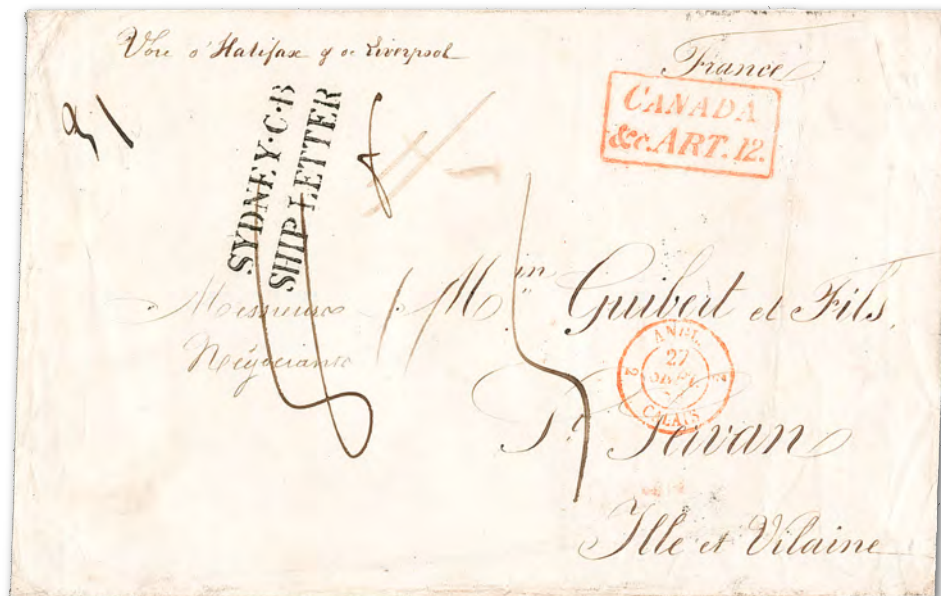 Voie d'Halifax & de Liverpool
France
CANADA
&c. ART. 12.
SYDNEY·C·B
SHIP LETTER
Messieurs
Négociants
Guibert et Fils
ANGL.
2 27 2
SEPT.
CALAIS
St Servan
Ille et Vilaine